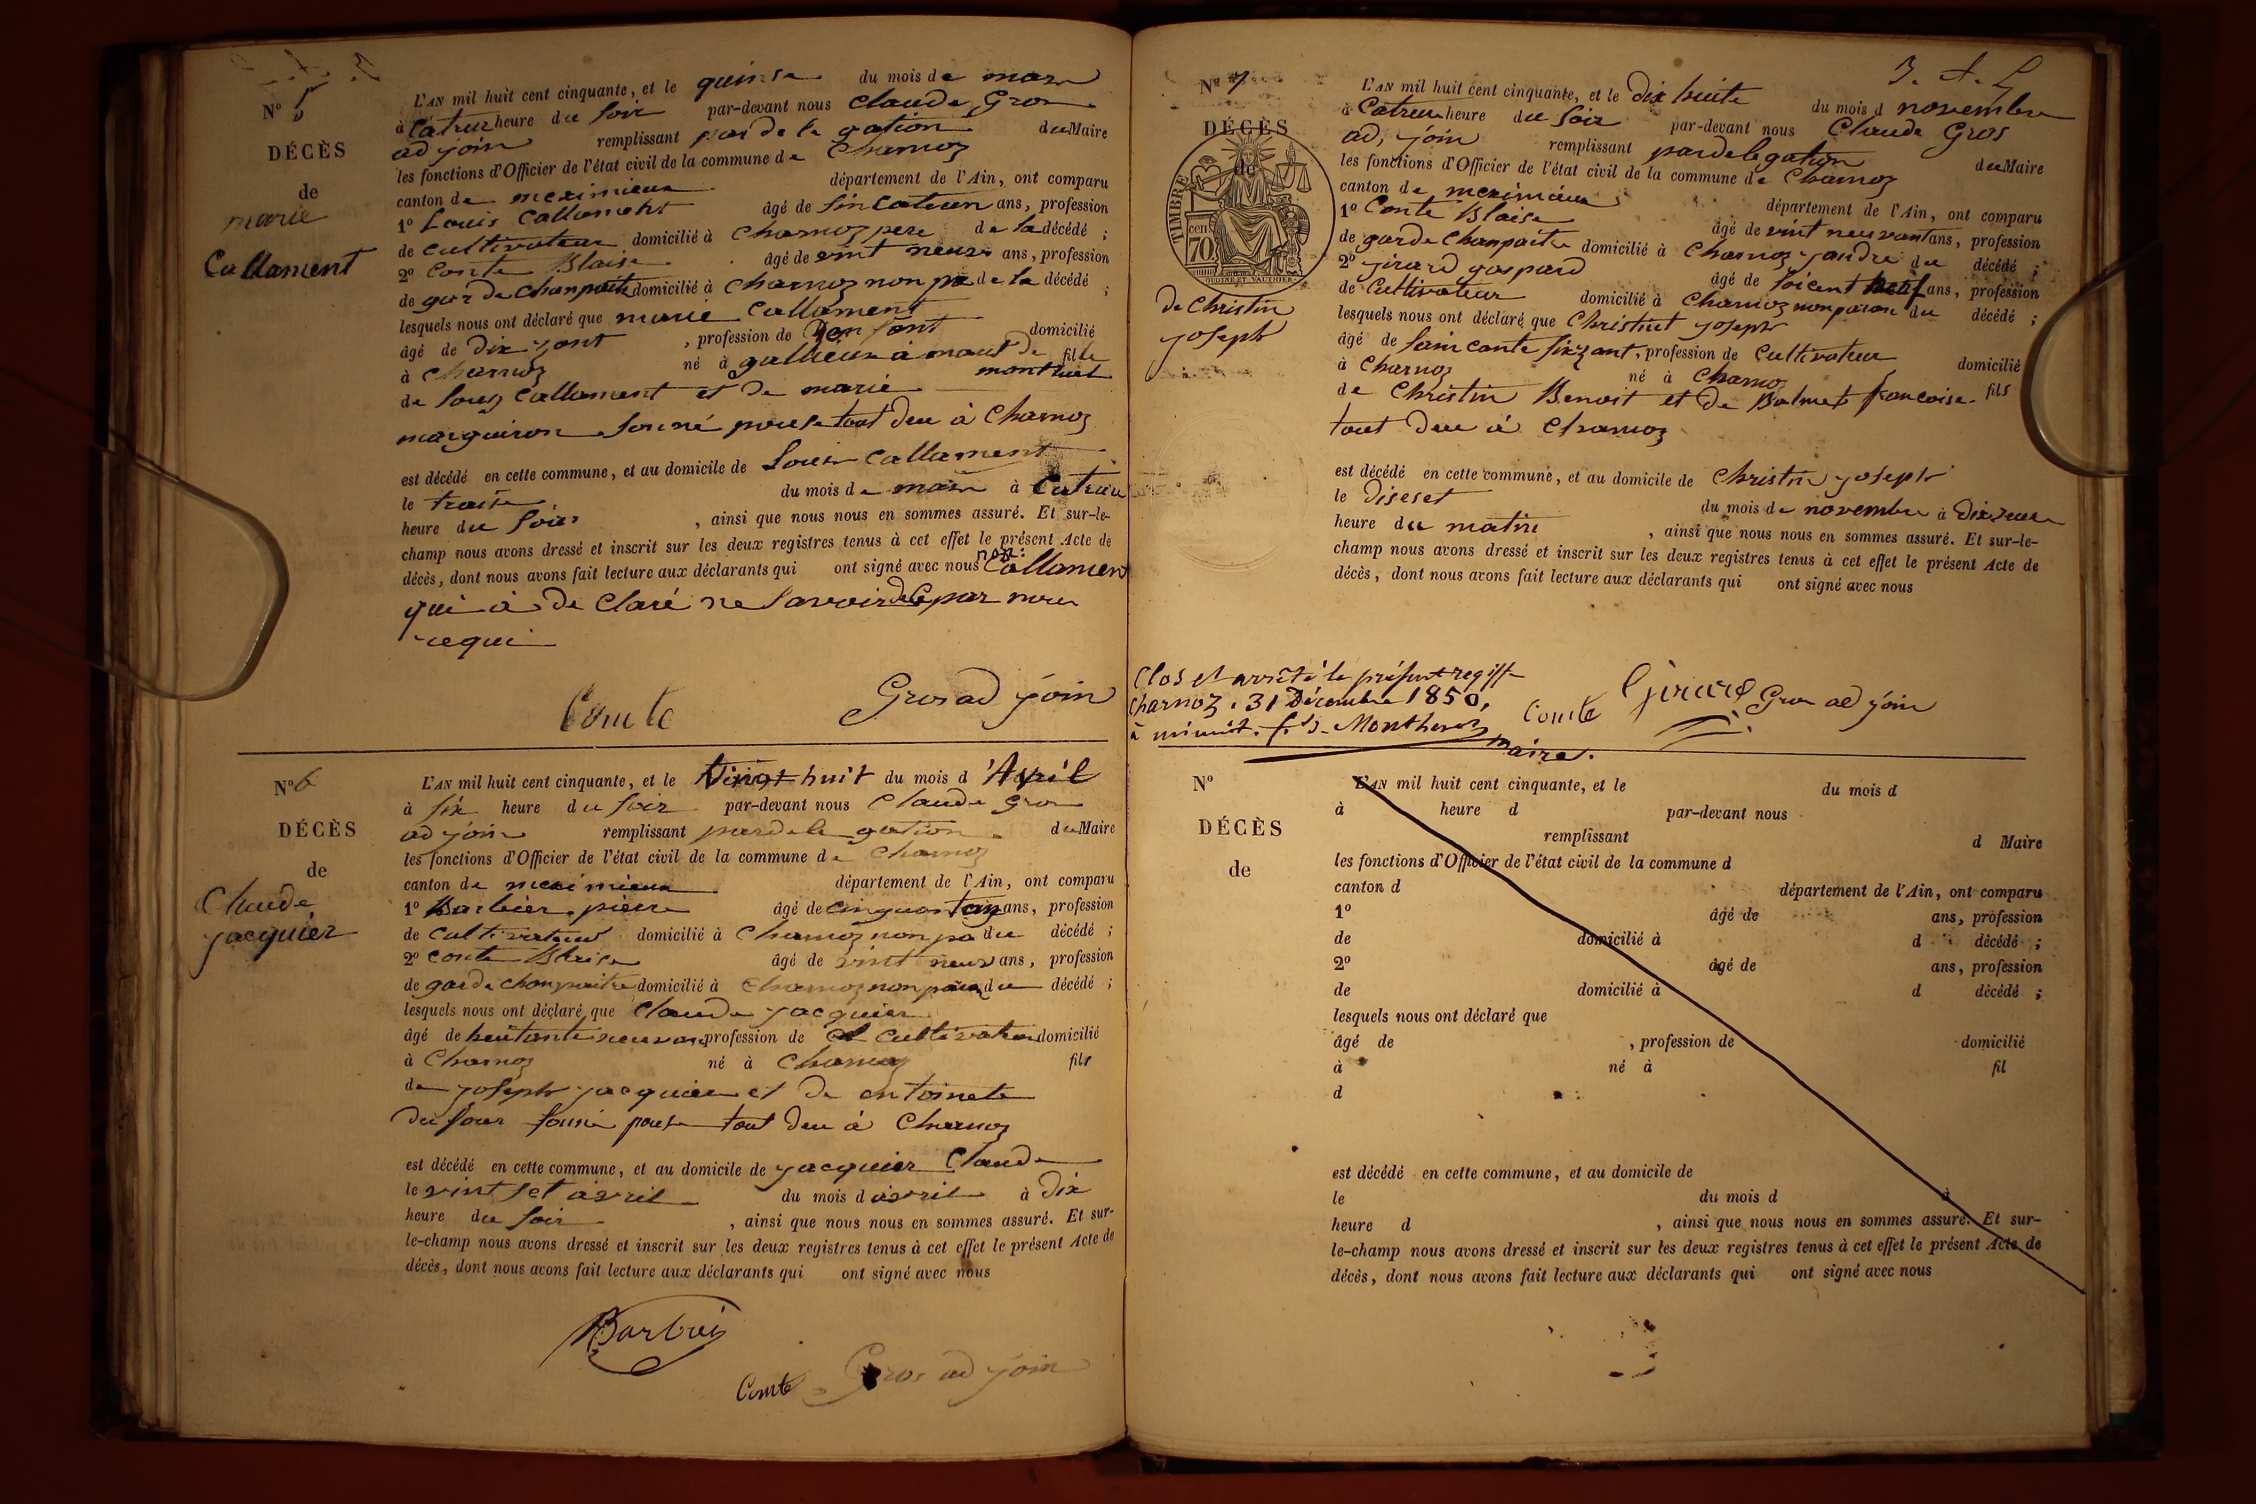 N° 5
DÉCÈS
de
marie
Callament
L'AN mil huit cent cinquante, et le quinse du mois de mars
à Catreur heure du soir par-devant nous Claude Gros
ad join remplissant par de le gation du Maire
les fonctions d'Officier de l'état civil de la commune de Charnoz
canton de meximieux département de l'Ain, ont comparu
1° Louis Callament âgé de sincateun ans, profession
de cultivateur domicilié à Charnoz pere de la décédé ;
2° Conte Blaise âgé de vint neuf ans, profession
de gar de Chanpaitre domicilié à Charnoz non pa de la décédé ;
lesquels nous ont déclaré que marie Callament
âgé de Dix jont , profession de domicilié
à Charnoz né à de fille
montluel
de Louis Callament et de marie
marguiron sonné pouse tout deu à Charnoz
est décédé en cette commune, et au domicile de Louis Callament
le traise du mois de mars à Catreur
heure du soir , ainsi que nous nous en sommes assuré. Et sur-le-
champ nous avons dressé et inscrit sur les deux registres tenus à cet effet le présent Acte de
décès, dont nous avons fait lecture aux déclarants qui ont signé avec nous non: Callament
qui à de claré ne savoir de ce par nous
requi
Comte Gros ad join
N° 6
DÉCÈS
de
Claude
jacquier
L'AN mil huit cent cinquante, et le Vingt huit du mois d'Avril
à six heure du soir par-devant nous Claude Gros
ad join remplissant par de le gation du Maire
les fonctions d'Officier de l'état civil de la commune de Charnoz
canton de meximieux département de l'Ain, ont comparu
1° Barbier pierre âgé de ans, profession
de Cultivateur domicilié à Charnoz non pa du décédé ;
2° Conte Blaise âgé de vint neuf ans, profession
de garde Chanpaitre domicilié à Charnoz non paran du décédé ;
lesquels nous ont déclaré que Claude jacquier
âgé de huitante neuvans profession de Cultivateur domicilié
à Charnoz né à Charnoz fils
de joseph jacquier et de entoinete
du four sonné pouse tout deu à Charnoz
est décédé en cette commune, et au domicile de jacquier Claude
le vint set avril du mois d avril à dix
heure du soir , ainsi que nous nous en sommes assuré. Et sur-
le-champ nous avons dressé et inscrit sur les deux registres tenus à cet effet le présent Acte de
décès, dont nous avons fait lecture aux déclarants qui ont signé avec nous
Barbier
Comte Gros ad join
N° 7
DÉCÈS
de
TIMBRE
70
de Christin
joseph
L'AN mil huit cent cinquante, et le dix huite du mois d novembre
à Catreur heure du soir par-devant nous Claude Gros
ad, join remplissant par delegation du Maire
les fonctions d'Officier de l'état civil de la commune de Charnoz
canton de meximieux département de l'Ain, ont comparu
1° Conte Blaise âgé de vint neuvant ans, profession
de garde Chanpaitre domicilié à Charnoz jandre du décédé ;
2° jirard gaspard âgé de soicent neuf ans, profession
de Cultivateur domicilié à Charnoz non paran du décédé ;
lesquels nous ont déclaré que Christint joseph
âgé de sain cante sizzant, profession de Cultivateur domicilié
à Charnoz né à Charnoz fils
de Christin Benoit et de Balmet francoise
tout deu à Charnoz
est décédé en cette commune, et au domicile de Christin joseph
le diseset du mois de novembre à dizzeure
heure du matin , ainsi que nous nous en sommes assuré. Et sur-le-
champ nous avons dressé et inscrit sur les deux registres tenus à cet effet le présent Acte de
décès, dont nous avons fait lecture aux déclarants qui ont signé avec nous
Clos et arrêté le présent regist
Charnoz. 31 Décembre 1850,
à minuit.
maire.
Comte Girard Gros ad join
N°
DÉCÈS
de
L'AN mil huit cent cinquante, et le du mois d
à heure d par-devant nous
remplissant d Maire
les fonctions d'Officier de l'état civil de la commune d
canton d département de l'Ain, ont comparu
1° âgé de ans, profession
de domicilié à d décédé ;
2° âgé de ans, profession
de domicilié à d décédé ;
lesquels nous ont déclaré que
âgé de , profession de domicilié
à né à fil
d
est décédé en cette commune, et au domicile de
le du mois d à
heure d , ainsi que nous nous en sommes assuré. Et sur-
le-champ nous avons dressé et inscrit sur les deux registres tenus à cet effet le présent Acte de
décès, dont nous avons fait lecture aux déclarants qui ont signé avec nous